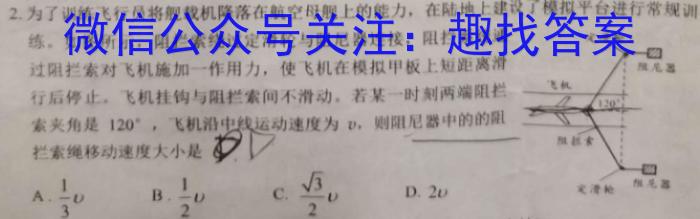 2.为了训练飞行员将舰载机降落在航空母舰上的能力，在陆地上建设了模拟平台进行常规训
练。
微信公众号关注：趣找答案
过阻拦索对飞机施加一作用力，使飞机在模拟甲板上短距离滑
行后停止。飞机挂钩与阻拦索间不滑动。若某一时刻两端阻拦
索夹角是 120°，飞机沿中线运动速度为 υ，则阻尼器中的的阻
拦索绳移动速度大小是
A. 1/3 υ B. 1/2 υ C. √3/2 υ D. 2υ
阻尼器
飞机
120°
阻拦索
定滑轮
阻尼器